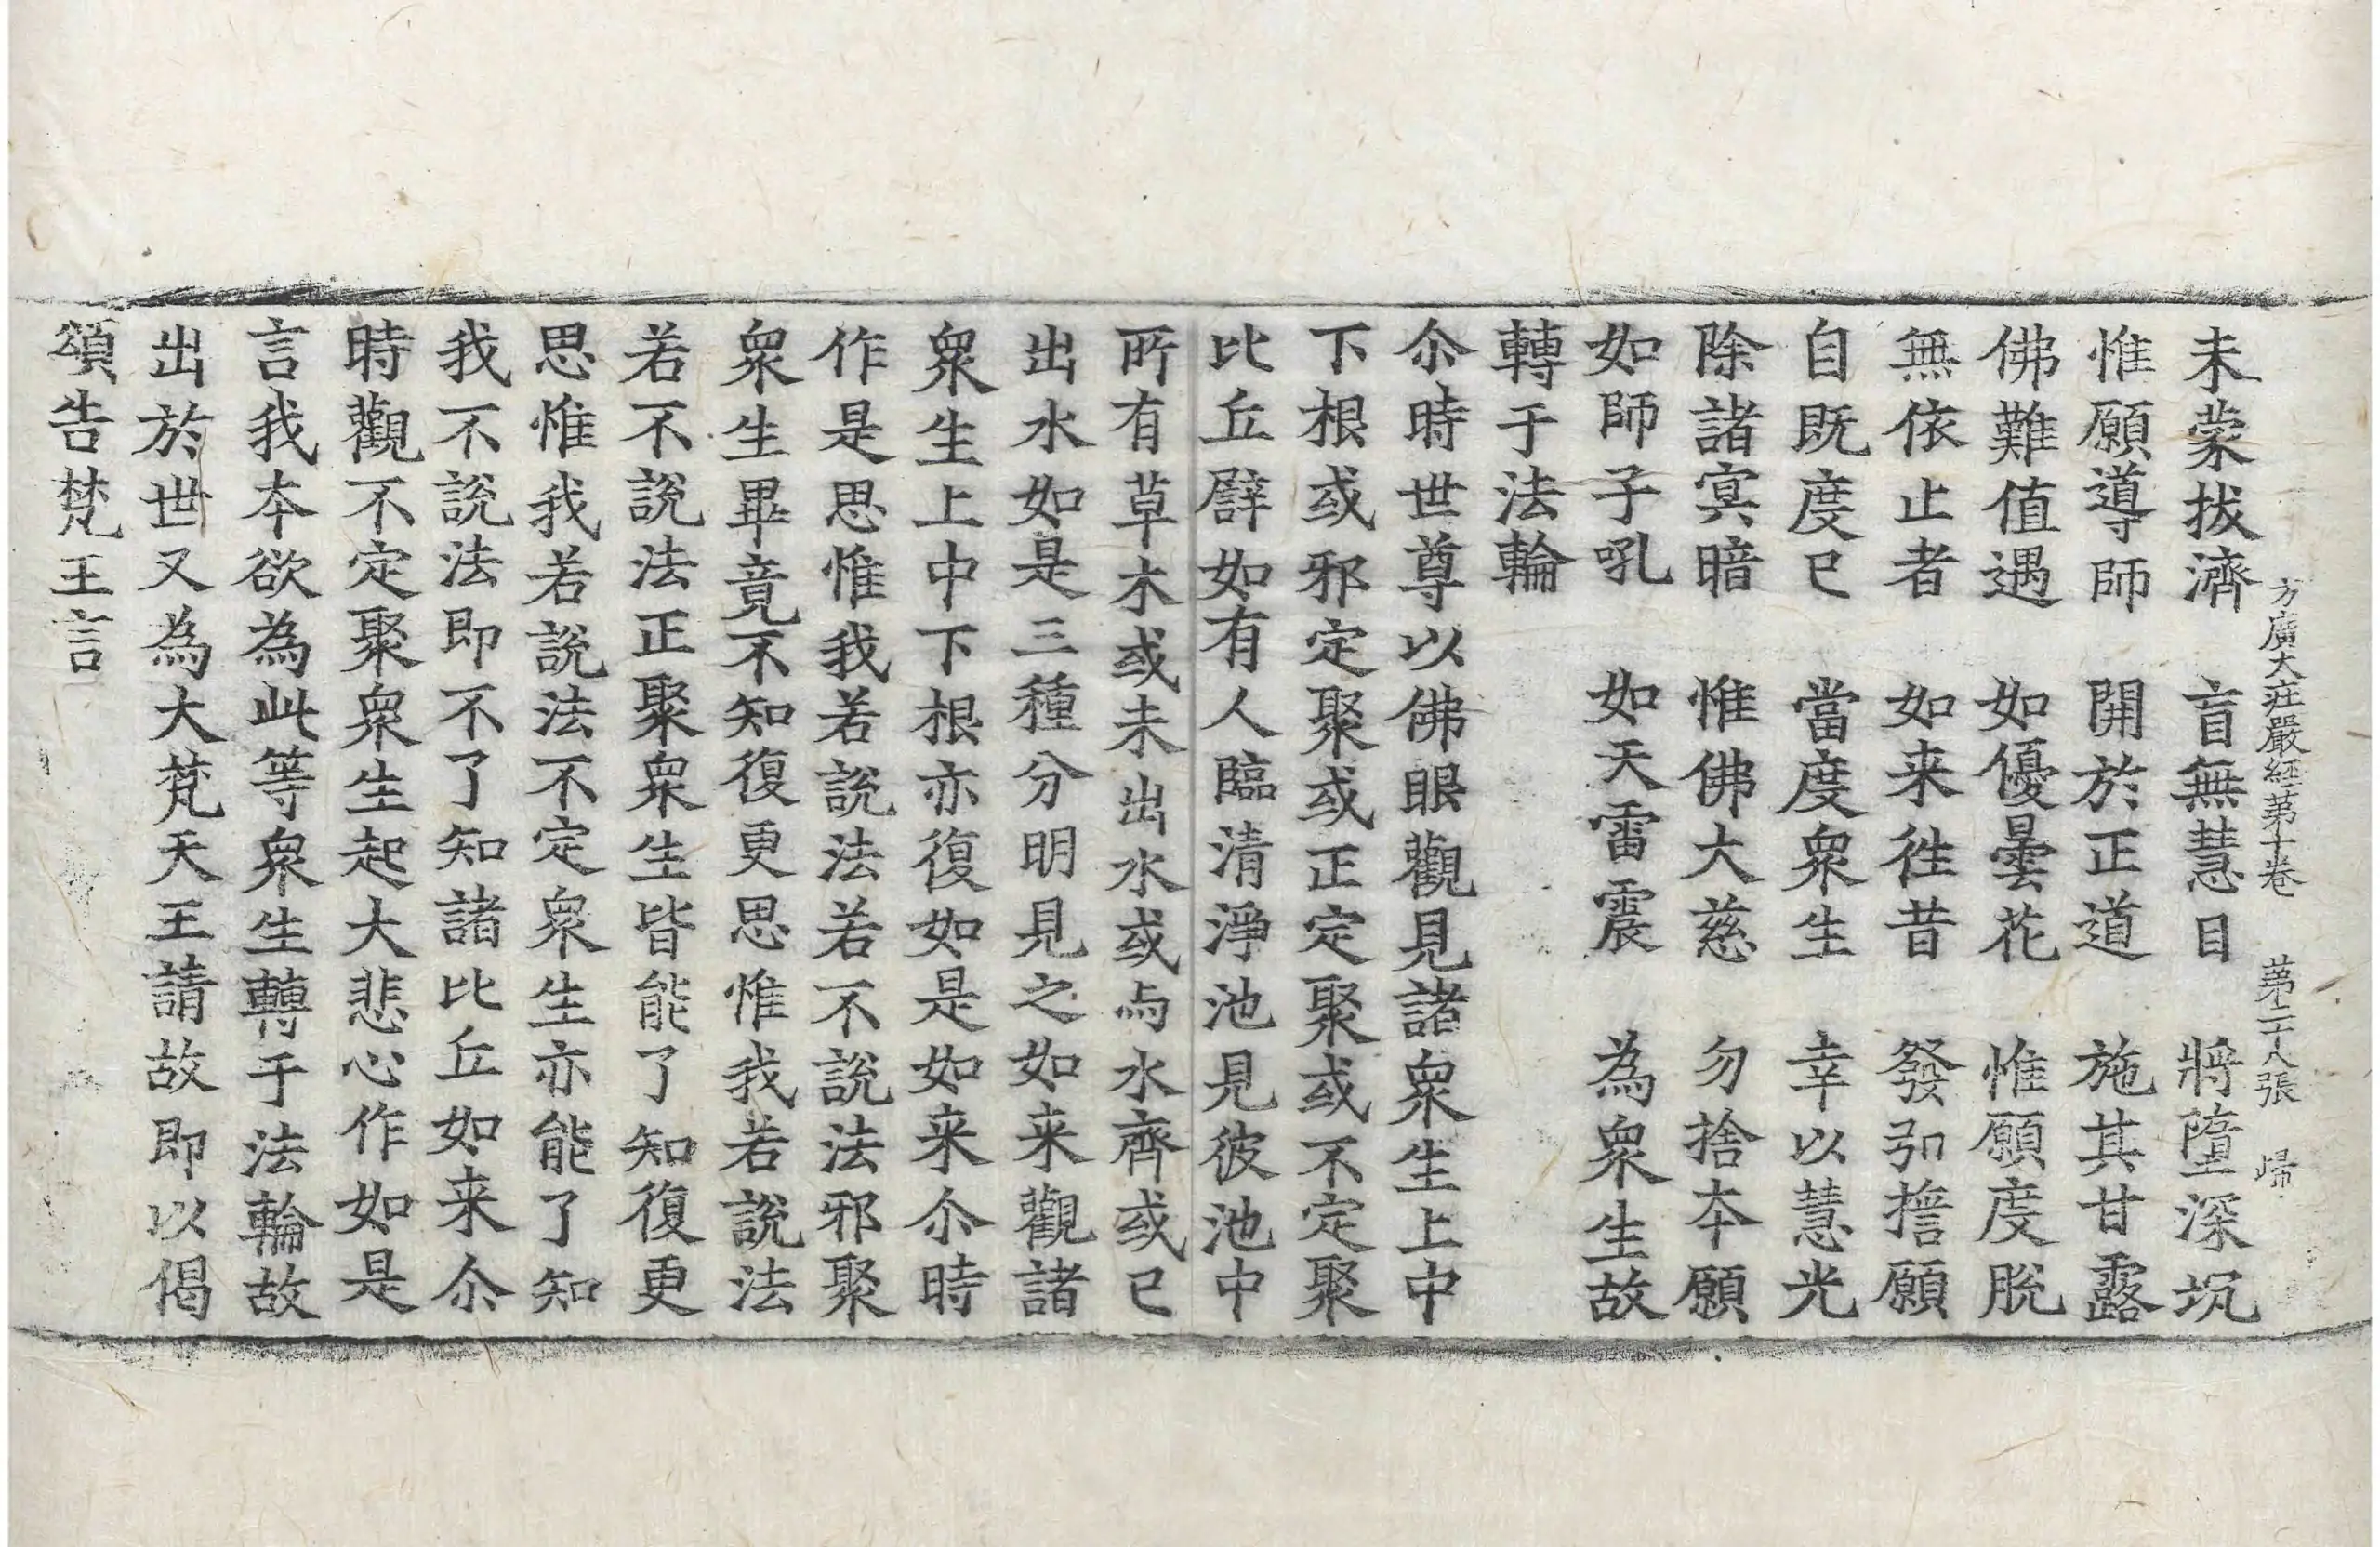 方廣大莊嚴經第十卷　第二十八張　歸
未蒙拔濟　盲無慧目　將墮深坑
惟願導師　開於正道　施其甘露
佛難值遇　如優曇花　惟願度脫
無依止者　如来徃昔　發引擔願
自既度已　當度衆生　幸以慧光
除諸冥暗　惟佛大慈　勿捨本願
如師子吼　如天雷震　為衆生故
轉于法輪
尒時世尊以佛眼觀見諸衆生上中
下根或邪定聚或正定聚或不定聚
比丘譬如有人臨清淨池見彼池中
所有草木或未出水或与水齊或已
出水如是三種分明見之如来觀諸
衆生上中下根亦復如是如来尒時
作是思惟我若說法若不說法邪聚
衆生畢竟不知復更思惟我若說法
若不說法正聚衆生皆能了知復更
思惟我若說法不定衆生亦能了知
我不說法即不了知諸比丘如来尒
時觀不定聚衆生起大悲心作如是
言我本欲為此等衆生轉于法輪故
出於世又為大梵天王請故即以偈
頌告梵王言